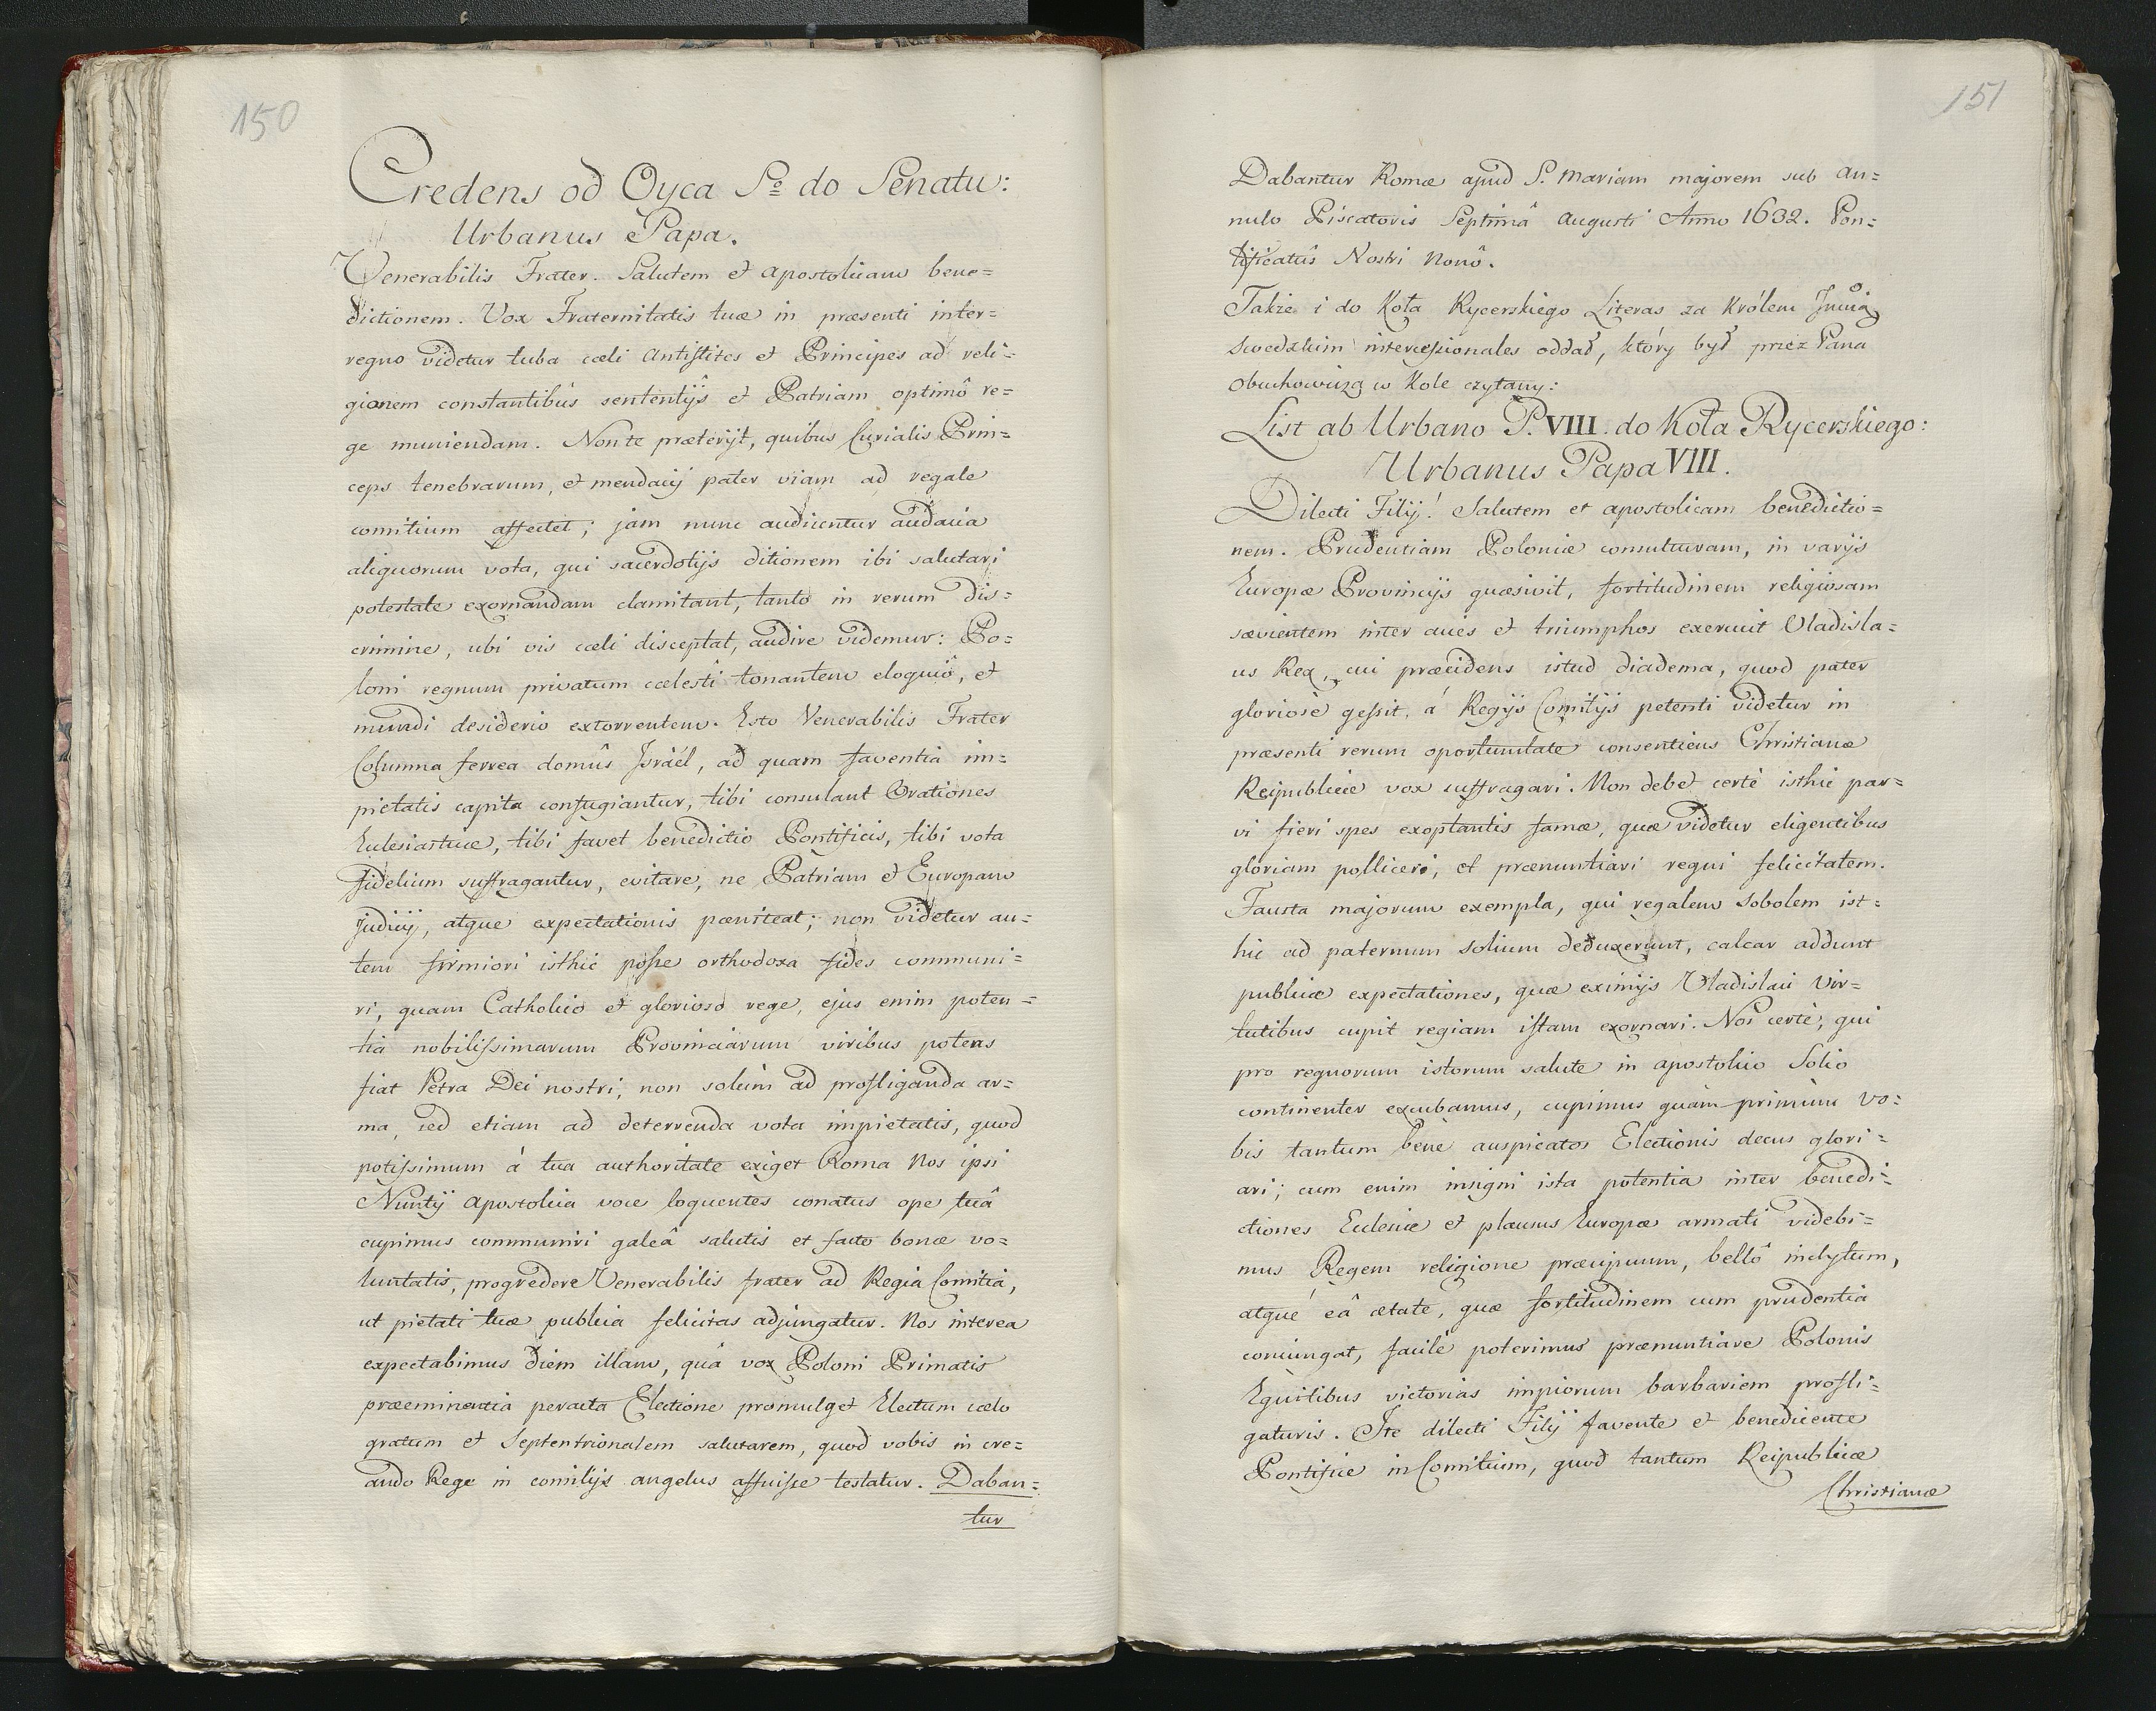 150
Credens od Oyca Sº do Senatu:
Urbanus Papa.
Venerabilis Frater. Salutem et apostolicam bene=
dictionem. Vox Fraternitatis tuæ in præsenti inter=
regno videtur tuba cæli Antistites et Principes ad reli=
gionem constantibus sententijs et Patriam optimô re=
ge muniendam. Non te præterijt, quibus Curialis Prin=
ceps tenebrarum, et mendacij pater viam ad regale
comitium affectet; jam nunc audiuntur audacia
aliquorum vota, qui sacerdotijs ditionem ibi salutari
potestate exornandam clamitant, tanto in rerum dis=
crimine, ubi vis cæli disceptat, audire videmur: Po=
loni regnum privatum cælesti tonantem eloquiô, et
mundi desiderio extorrentem. Esto Venerabilis Frater
Columna ferrea domûs Israél, ad quam faventia im=
pietatis capita confugiantur, tibi consulant Orationes
Eclesiasticæ, tibi favet benedictio Pontificis, tibi vota
fidelium suffragantur, evitare, ne Patriam et Europam
judicij, atque expectationis pæniteat; non videtur au=
tem firmiori isthic posse orthodoxa fides communi=
ri, quam Catholico et glorioso rege, ejus enim poten=
tia nobilissimarum Provinciarum viribus potens
fiat Petra Dei nostri, non solùm ad profliganda ar=
ma, sed etiam ad deterrenda vota impietatis, quod
potissimum á tua authoritate exiget Roma Nos ipsi
Nuntij Apostolica voce loquentes conatus ope tuâ
cupimus communiri galeâ salutis et facto bonæ vo=
luntatis, progredere Venerabilis frater ad Regia Comitia,
ut pietati tuæ publica felicitas adjungatur. Nos interea
expectabimus diem illam, quâ vox Poloni Primatis
præeminentia peracta Electione promulget Electum cælo
gratum et Septentrionalem salutarem, quod vobis in cre=
ando Rege in comitijs angelus affuisse testatur. Daban=
tur
151
Dabantur Romæ apud S. Mariam majorem sub an=
nulo Piscatoris Septimâ Augusti Anno 1632. Pon=
tificatûs Nostri Nonô.
Także i do Koła Rycerskiego Literas za Królem Jmcią
Swedzkim intercessionales oddał, który był przez Pana
Obuchowicza w Kole czytany:
List ab Urbano P. VIII. do Koła Rycerskiego:
Urbanus Papa VIII.
Dilecti Filij! Salutem et apostolicam benedictio=
nem. Prudentiam Poloniæ consulturam, in varijs
Europæ Provincijs quæsivit, fortitudinem religiosam
sævientem inter acies et triumphos exercuit Vladisla=
us Rex, cui præcidens istud diadema, quod pater
gloriosè gessit, á Regijs Comitijs petenti videtur in
præsenti rerum oportunitate consentiens Christianæ
Reipublicæ vox suffragari. Non debet certè isthic par=
vi fieri spes exoptantis famæ, quæ videtur eligentibus
gloriam polliceri, et prænuntiari regni felicitatem.
Fausta majorum exempla, qui regalem Sobolem ist=
hic ad paternum solium deduxerunt, calcar addunt
publicæ expectationes, quæ eximijs Vladislai Vir=
tutibus cupit regiam istam exornari. Nos certè, qui
pro regnorum istorum salute in apostolico Solio
continenter excubamus, cupimus quàm primùm vo=
bis tantum benè auspicatos Electionis decus glori=
ari; cum enim insigni ista potentia inter benedi=
ctiones Eclesiæ et plausus Europæ armati videbi=
mus Regem religione præcipuum, bellô inclytum,
atque eâ ætate, quæ fortitudinem cum prudentia
conjungat, facilè poterimus prænuntiare Polonis
Equitibus victorias impiorum barbariem profli=
gaturis. Ite dilecti Filij favente et benedicente
Pontifice in Comitium, quod tantum Reipublicæ
Christianæ